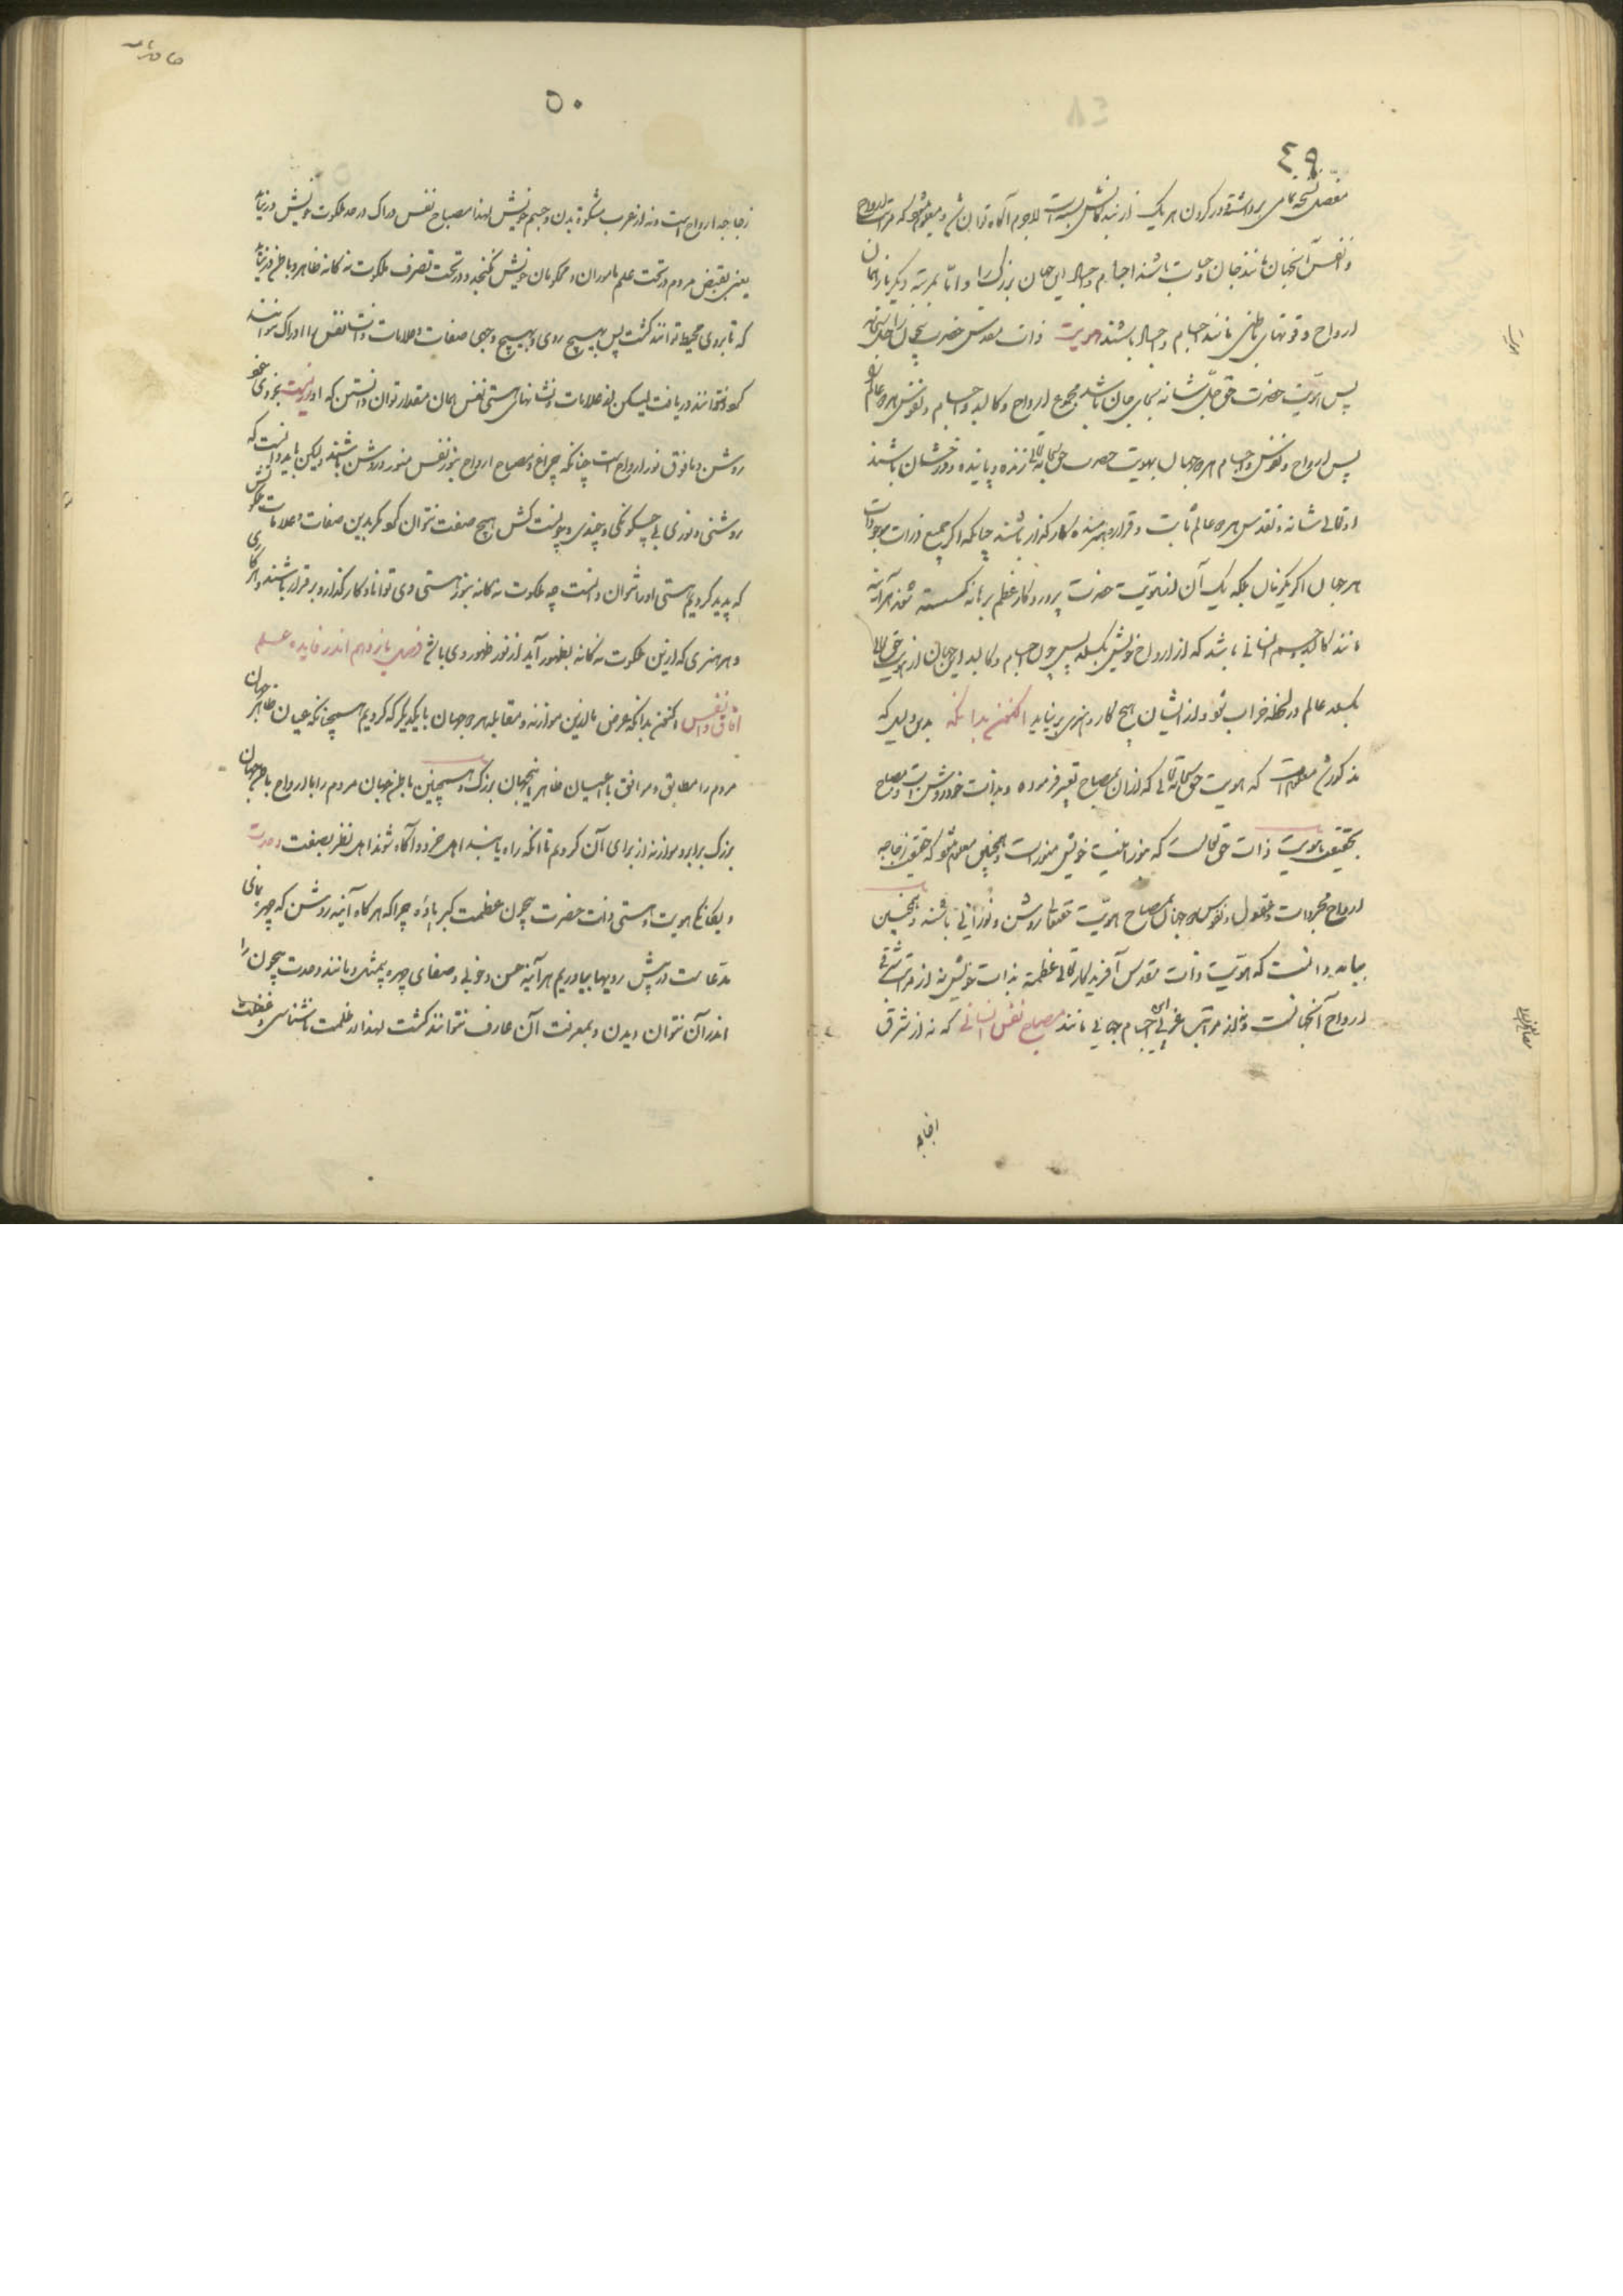 ٤٩
مفصل نسخه برداشته و ور کردن هر یک از بندگانش بسته است لاجرم آگاه توان شد و معلوم شود که مراتب ارواح
و نفس آنجهان مانند جان و حیات باشند اجسام و جسد این جهان بزرگ را و اما بمرتبه دیگر باز همان
ارواح و قوتهای باطنی مانند اجسام و جسد باشند هویت ذات مقدس حضرت بیچون را جل شانه
پس هویت حضرت حق جل شانه بجای جان باشد مجموع ارواح و کالبد و اجسام و نفوس هر دو عالم
پس ارواح و نفوس و اجسام هر دو جهان بهویت حضرت حق سبحانه تعالی زنده و پاینده و درخشان باشند
او تعالی شانه و تقدس هر دو عالم ثابت و قرار دهنده کارگذار باشند چنانکه اگر جمیع ذرات موجودات
هر جهان اگر یکزمان بلکه یک آن از هویت حضرت پروردگار عظم برهانه گسسته شوند هر آینه
مانند کالبد و جسم انسانی باشد که از ارواح خویش بگسلد پس چون اجسام و کالبد این جهان از هویت حق تعالی
بگسلد عالم در لحظه خراب شود و از ایشان هیچ کار و هنری برنیاید اکنون بدانکه بدین دلیل که
مذکور شد معلوم است که هویت حق سبحانه تعالی که از آن بمصباح تعبیر فرموده و بذات خود روشن است و مصباح
بحقیقت هویت ذات حق تعالیست که بنور اغنیت خویش منور است و همچنین معلوم شود که حقیقت زجاجه
ارواح مجردات و عقول و نفوس هر دو جهان بمصباح هویت حقتعالی روشن و نورانی یافته و همچنین
بباید دانست که هویت ذات مقدس آفریدگار تعالی عظمته بذات خویش نه از مراتب شرقی
ارواح آنجهانست و نه از مراتب غربی اجسام جهانی مانند مصباح نفس انسانی که نه از شرق
٥٠
زجاجه ارواح است و نه از غرب مشکوة بدن و جسم خویش لهذا مصباح نفس دراک در حد ملکوت خویش در نیاید
یعنی بقبض مردم و تحت علم ماموران و محکومان خویش نگنجد و در تحت تصرف ملکوت سه گانه ظاهر و باطن در نیاید
که تا بروی محیط توانند گشت پس بهیچ روی و بهیچ وجهی صفات و علامات ذات نفس را ادراک نتوانند
کرد و نتوانند دریافت لیکن از علامات و نشانهای هستی نفس همان مقدار توان دانستن که او نوریست بخودی خود
روشن و مافوق نور ارواح است چنانکه چراغ و مصباح ارواح بنور نفس منور و روشن باشند ولیکن باید دانست که
روشنی و نوری بی چگونگی و چندی و چونیست کش هیچ صفت نتوان کرد مگر بدین صفات و علامات ملکوتش
که پدید کردیم هستی او را نتوان دانست چه ملکوت سه گانه بنور هستی وی توانا و کارگذار و برقرار باشند و هر کاری
و هر هنری که از این ملکوت سه گانه بظهور آید از نور ظهور وی باشد فصل یازدهم اندر فایده علم
آفاق و انفس اکنون بدانکه غرض ما از این موازنه و مقابله هر دو جهان با یکدیگر که کردیم همچنانکه عیان ظاهر جهان
مردم را مطابق و موافق با عیان ظاهر اینجهان بزرگ و همچنین باطن جهان مردم را با ارواح باطن جهان
بزرگ برابر و موازنه از برای آن کردیم تا آنکه راه یابند اهل خرد و آگاه شوند اهل نظر بصفت وحدت
و یگانگی هویت و هستی ذات حضرت بیچون عظمت کبریاؤه چرا که هر گاه آئینه روشن که چهر نمای
مدعاست در پیش رویها بیاوریم هر آینه حسن و خوبی و صفای چهره بیمثل و مانند وحدت بیچون را
اندر آن نتوان دیدن و بمعرفت آن عارف نتوانند گشت لهذا در ظلمت ناشناسی و غفلت